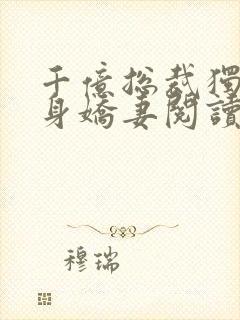 千億總裁獨
身嬌妻閱讀
穆瑞